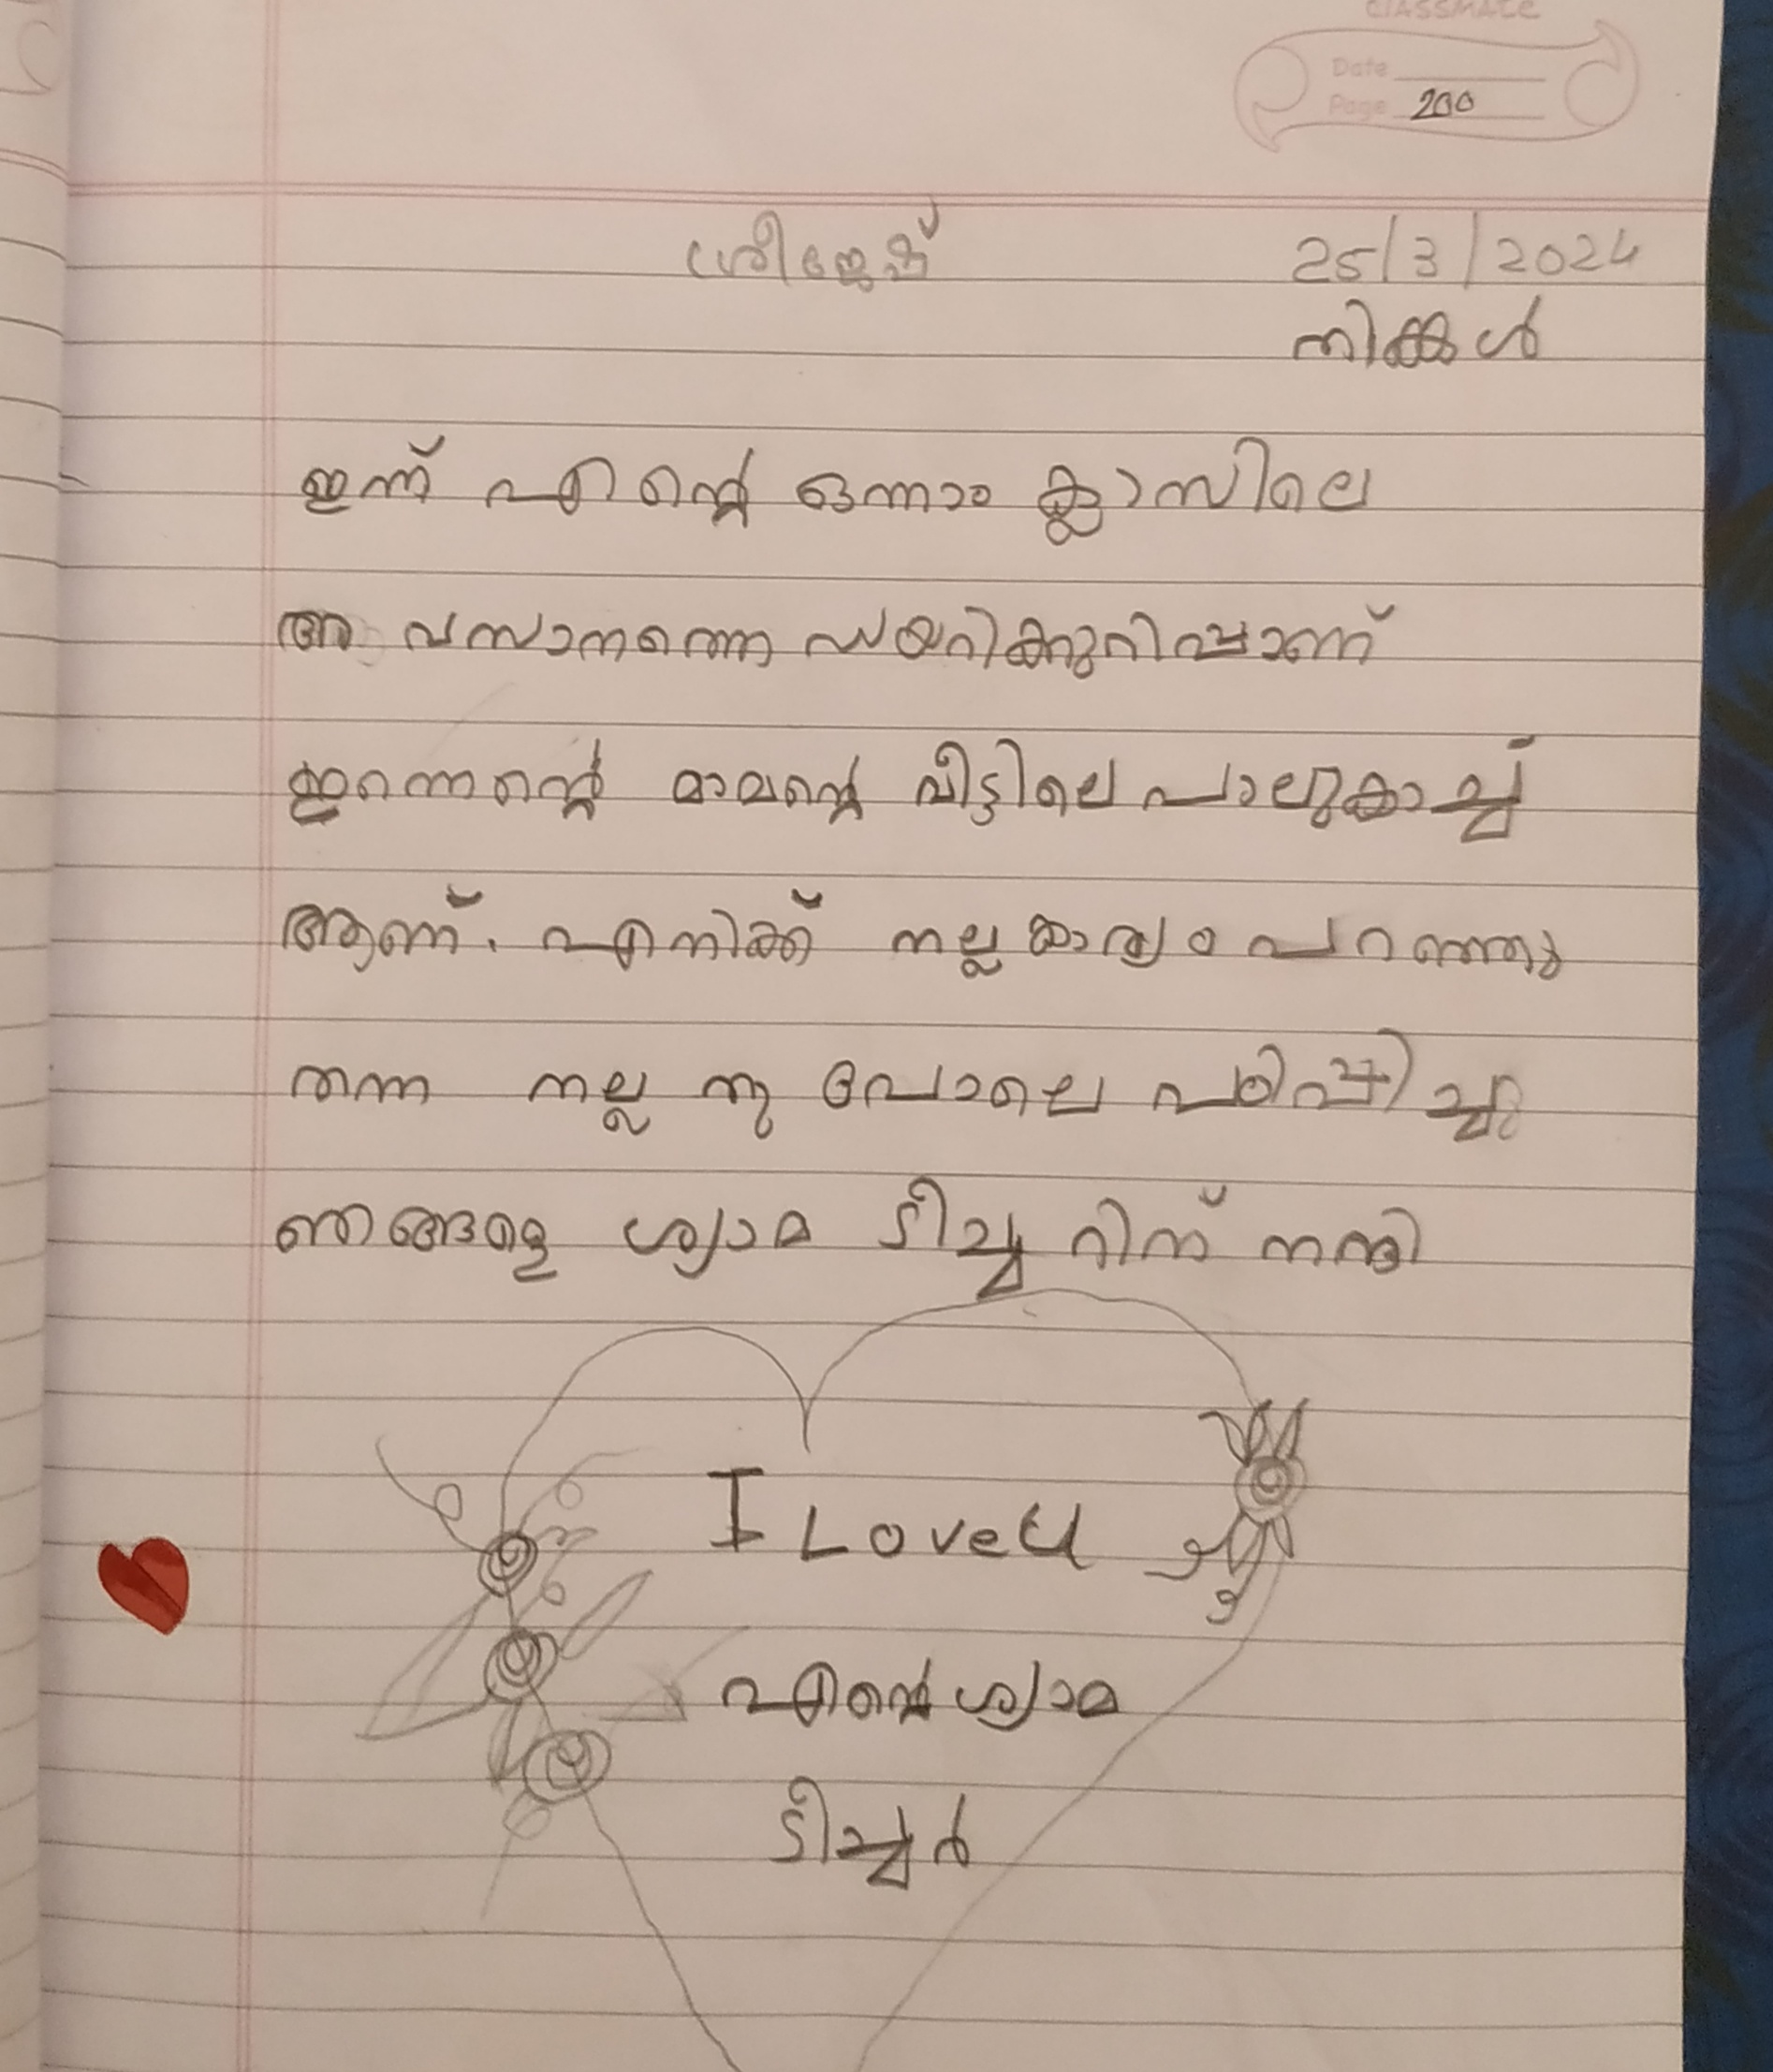 classmate
Date
Page 200
ശ്രീജേഷ്
25/3/2024
തിങ്കൾ
ഇന്ന് എന്റെ ഒന്നാം ക്ലാസിലെ
അവസാനത്തെ ഡയറികുറിപ്പാണ്
ഇന്നെന്റെ മാമന്റെ വീട്ടിലെ പാലുകാച്ച്
ആണ്. എനിക്ക് നല്ല കാര്യം പറഞ്ഞു
തന്ന നല്ല തു പോലെ പഠിപ്പിച്ചു
ഞങ്ങളെ ശ്യാമ ടീച്ച റിന് നന്ദി
I Love U
എന്റെ ശ്യാമ
ടീച്ചർ